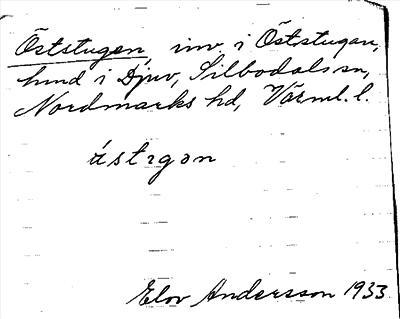 Öststugan, inv. i Öststugan,
hmd i Djuv, Silbodals sn,
Nordmarks hd, Värml. l.
östsgɑn
Elov Andersson 1933